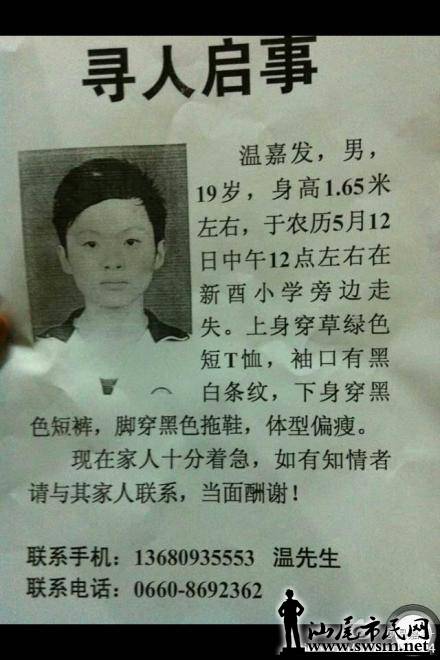 寻人启事
温嘉发，男，
19岁，身高1.65米
左右，于农历5月12
日中午12点左右在
新酉小学旁边走
失。上身穿草绿色
短T恤，袖口有黑
白条纹，下身穿黑
色短裤，脚穿黑色拖鞋，体型偏瘦。
现在家人十分着急，如有知情者
请与其家人联系，当面酬谢！
联系手机：13680935553 温先生
联系电话：0660-8692362
汕尾市民网
www.swsm.net